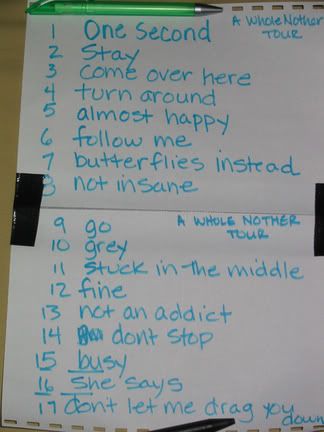 A Whole Nother
TOUR
1 One Second
2 Stay
3 come over here
4 turn around
5 almost happy
6 follow me
7 butterflies instead
8 not insane
A WHOLE NOTHER
TOUR
9 go
10 grey
11 stuck in the middle
12 fine
13 not an addict
14 dont stop
15 busy
16 she says
17 dont let me drag you down